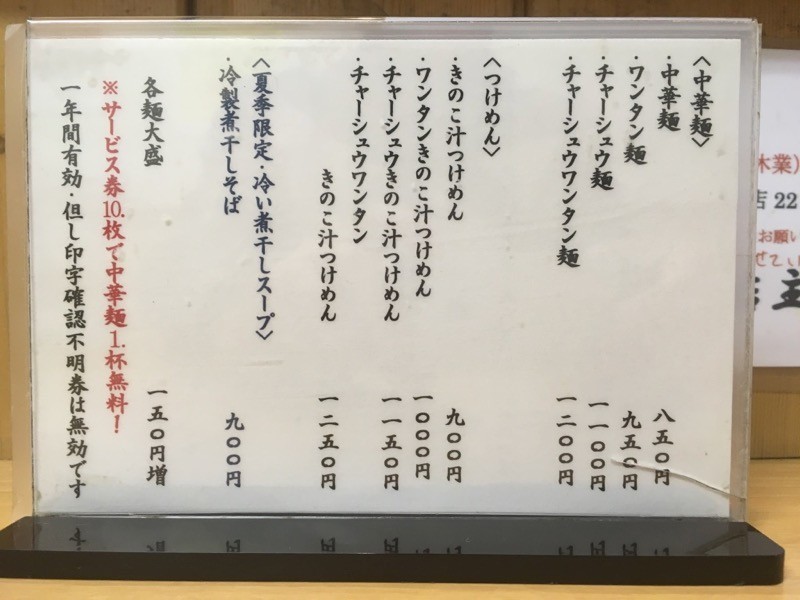 〈中華麺〉
・中華麺 八五〇円
・ワンタン麺 九五〇円
・チャーシュウ麺 一一〇〇円
・チャーシュウワンタン麺 一二〇〇円
〈つけめん〉
・きのこ汁つけめん 九〇〇円
・ワンタンきのこ汁つけめん 一〇〇〇円
・チャーシュウきのこ汁つけめん 一一五〇円
・チャーシュウワンタン
きのこ汁つけめん 一二五〇円
〈夏季限定・冷い煮干しスープ〉
・冷製煮干しそば 九〇〇円
各麺大盛 一五〇円増
※サービス券10.枚で中華麺1.杯無料！
一年間有効・但し印字確認不明券は無効です
休業）
店 22
お願い
主